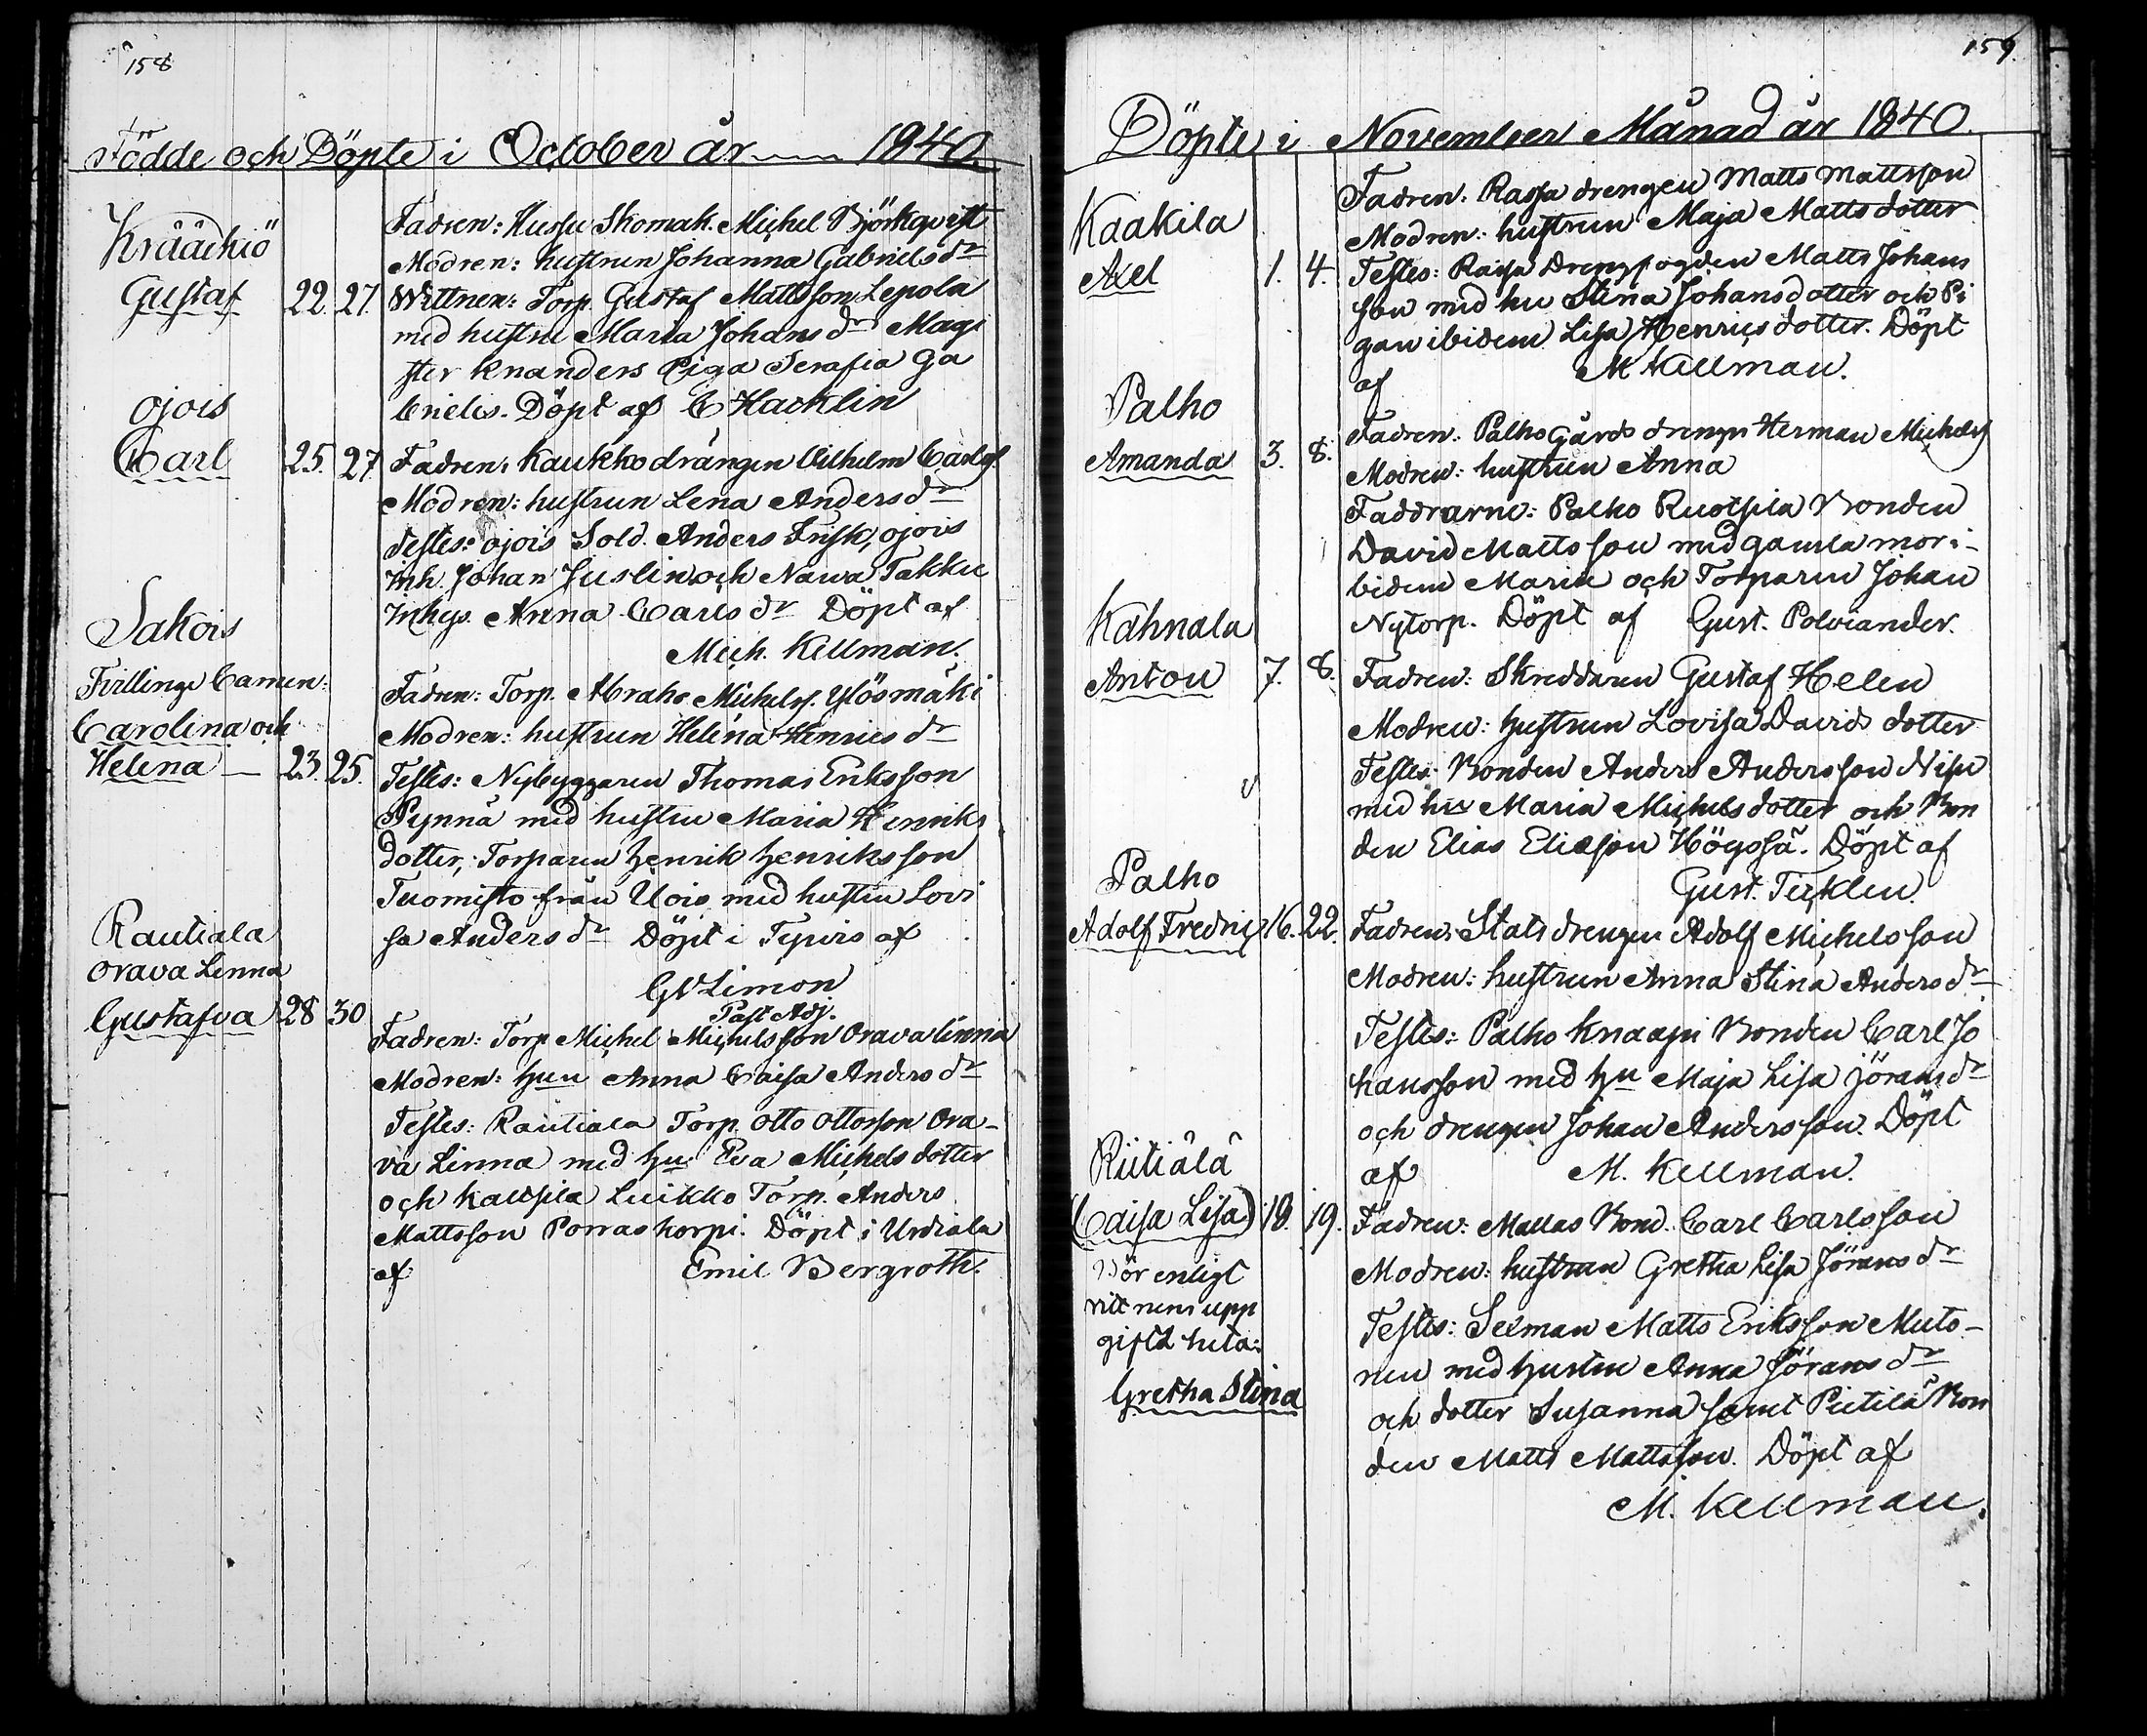 158
Födde och Döpte i October år 1840.
Kräächiö
Gustaf 22. 27.
Fadren: Hussu Skomak. Michel Björkqvist
Modren: hustrun Johanna Gabrielsdr
Wittnen: Torp. Gustaf Mattsson Lepola
med hustru Maria Johansdr Magi
ster Knanders Piga Serafia Ga
brielis. Döpt af C Hacklin
Ojois
Carl 25. 27
Fadren: Kaukko drängen Vilhelm Carlss.
Modren: hustrun Lena Andersdr
Testes: Ojois Sold. Anders Frisk, Ojois
Inh. Johan Juslin och Nawa Takku
Inhys. Anna Carlsdr Döpt af
Mich. Kellman.
Sakois
Tvillinge barnen:
Carolina och
Helena — 23. 25.
Fadren: Torp. Abrah. Michelss. Ylösmäki
Modren: hustrun Helena Henricsdr
Testes: Nybyggaren Thomas Eriksson
Pynnä med hustru Maria Henriks
dotter, Torparen Henrik Henriksson
Tuomisto från Uois med hustru Lovi
sa Andersdr Döpt i Typis af
GV Limon
Past. Adj.
Rautiala
Orava Linna
Gustafva 28 30
Fadren: Torp Michel Michelsson Orava linna
Modren: Hun Anna Caisa Andersdr
Testes: Rautiala Torp. Otto Ottosson Ora-
va Linna med hu Eva Michelsdotter
och Kaussila Luikko Torp. Anders
Mattsson Porraskorpi. Döpt i Urdiala
af Emil Bergroth.
159.
Döpte i November Månad år 1840.
Kaakila
Axel 1. 4.
Fadren: Rassa drengen Matts Mattsson
Modren: hustrun Maja Mattsdotter
Testes: Rassa Drengfogden Matts Johans
son med hu Stina Johansdotter och Pi
gan ibidem Lisa Henricsdotter. Döpt
af M Killman.
Palho
Amanda 3. 8.
Fadren: Palho Gårds drengen Herman Michelss
Modren: hustrun Anna
Faddrarne: Palho Ruotsila Bonden
David Mattsson med gamla mor i-
bidem Maria och Torparen Johan
Nytorp. Döpt af Gust. Polviander.
Kahnala
Anton 7. 8.
Fadren: Skreddaren Gustaf Helen
Modren: Hustrun Lovisa Davids dotter
Testes: Bonden Anders Andersson Nisu
med hu Maria Michelsdotter och Bon
den Elias Eliasson Högssä. Döpt af
Gust. Ticklen.
Palho
Adolf Fredric 16. 22.
Fadren: Stats drengen Adolf Michelsson
Modren: hustrun Anna Stina Andersdr
Testes: Palho Knaapi Bonden Carl Jo
hansson med Hu Maja Lisa Jöransdr
och drengen Johan Andersson. Döpt
af M. Kellman.
Riitiälä
(Caisa Lisa) 18. 19.
Bör enligt
vittnens upp
gift heta:
Gretha Stina
Fadren: Mallas Bond. Carl Carlsson
Modren: hustrun Gretha Lisa Jöransdr
Testes: Selman Matts Eriksson Muto-
nen med hustru Anna Jöransdr
och dotter Susanna samt Pietilä Bon
den Matts Mattsson. Döpt af
M. Kellman.